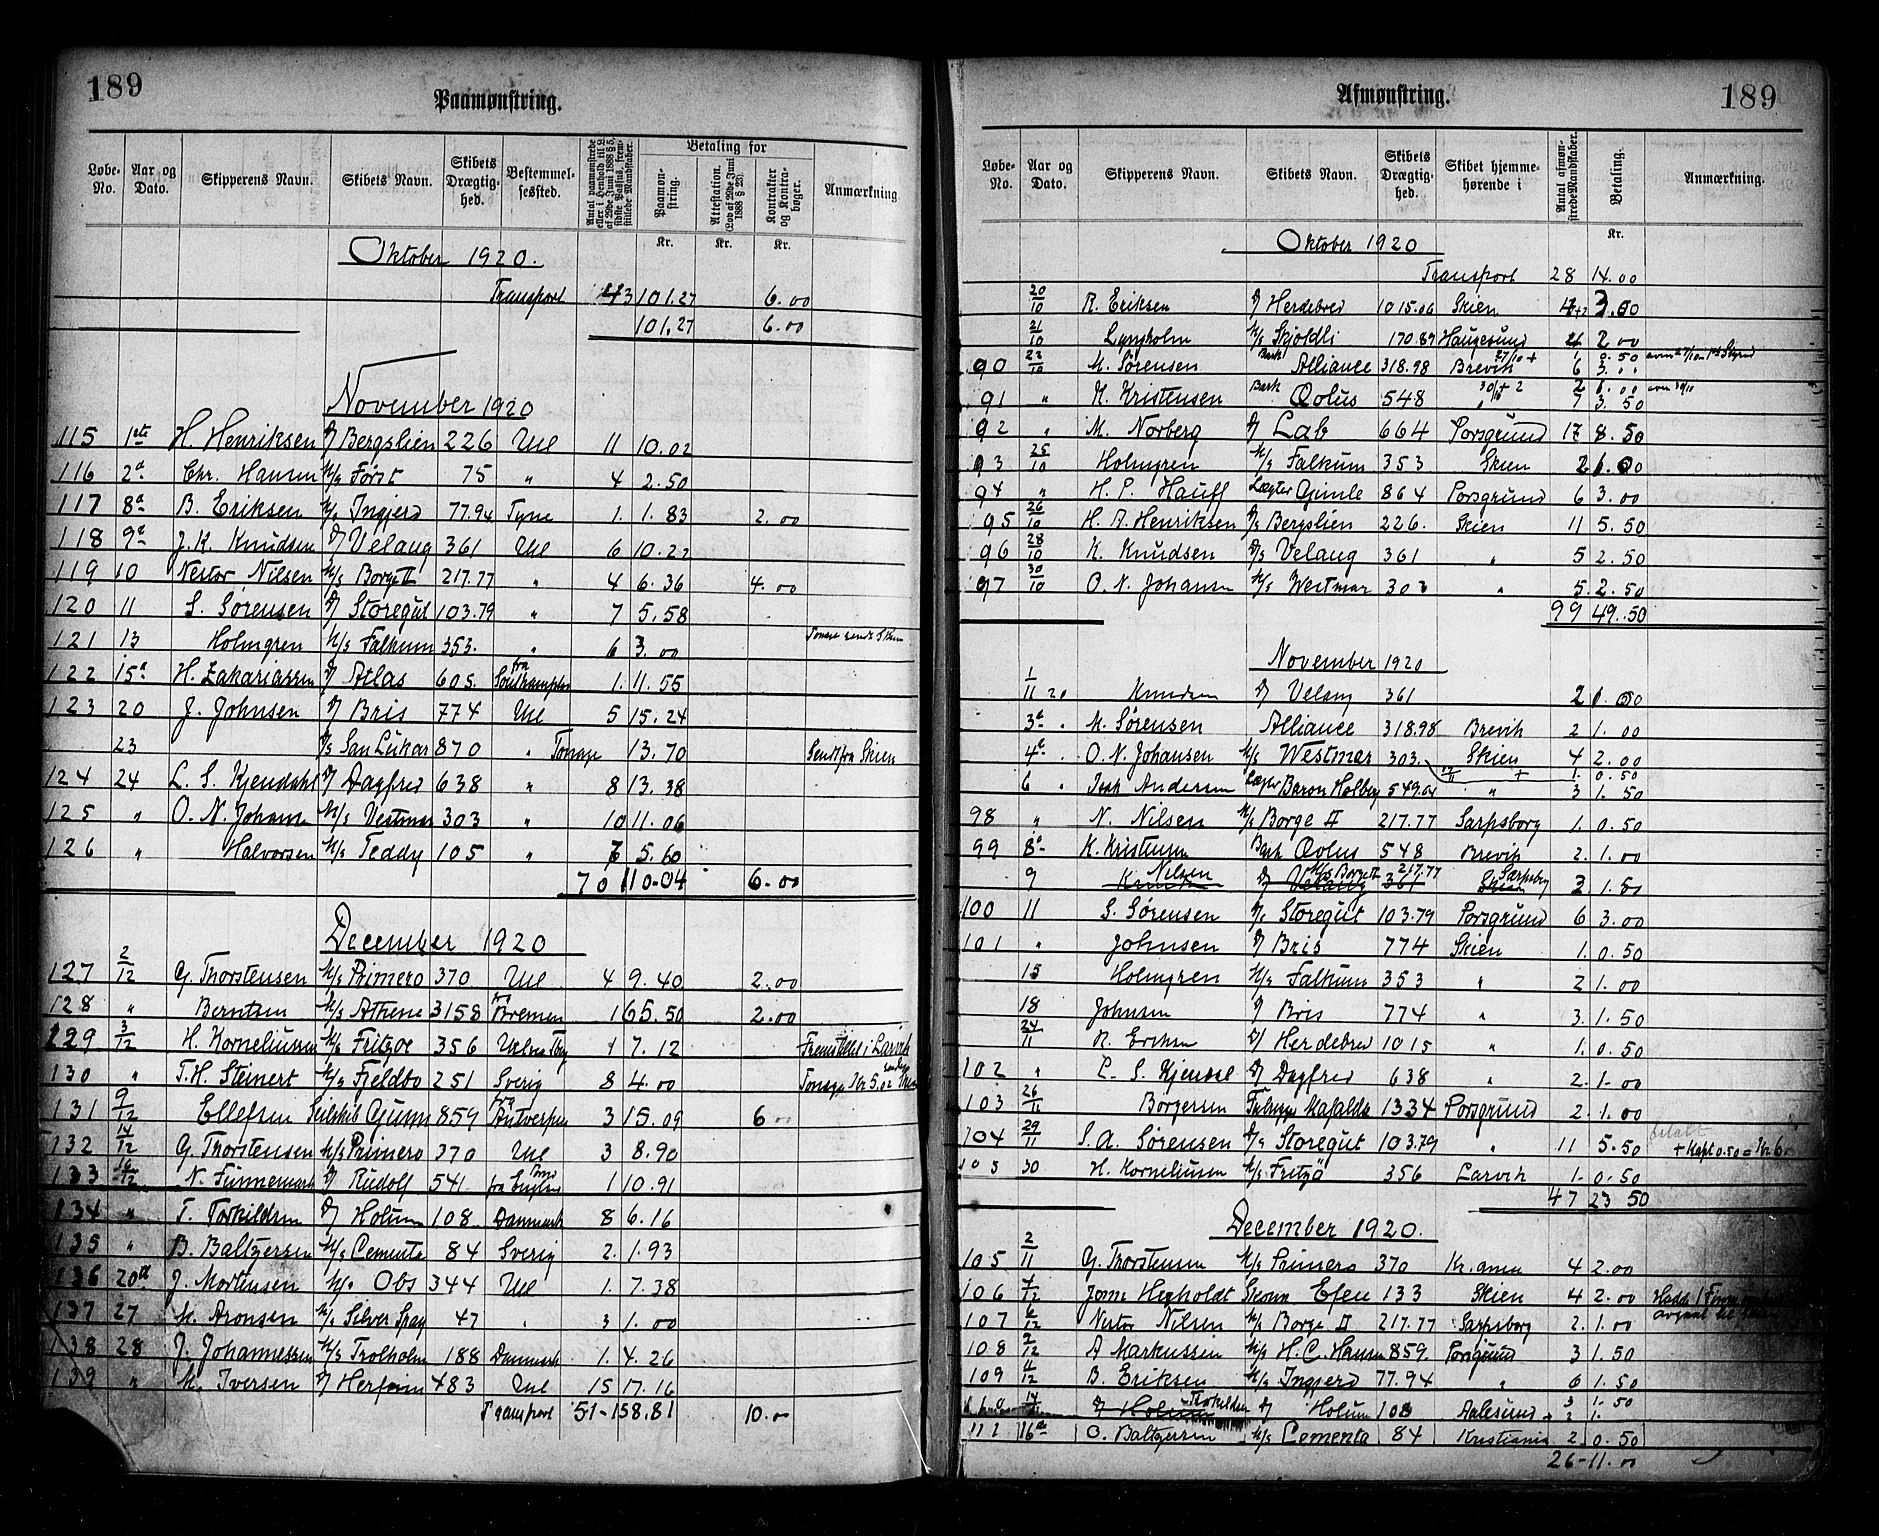 189
Paamønstring.
Løbe-No. Aar og Dato. Skipperens Navn. Skibets Navn. Skibets Drægtighed. Bestemmelsessted. Antal paamønstrede eller i Henhold til L. af 29de Juni 1888 § 5, sidste Passus, fremstillede Mandskaber. Betaling for Paamønstring. Attestation. (Lov af 29de Juni 1888 § 23). Kontrakter og Kontrabøger. Anmærkning.
Kr. Kr. Kr.
Oktober 1920.
Transport 43 101.27 6.00
101.27 6.00
November 1920
115 1ste H. Henriksen D/ Bergslien 226 Utl 11 10.02
116 2d Chr. Hansen M/s Først 75 " 4 2.50
117 8d B. Eriksen M/s Ingjerd 77.94 Tyne 1. 1.83 2.00
118 9d J. K. Knudsen D/ Velaug 361 Utl 6 10.22
119 10 Nestor Nilsen M/s Borge II 217.77 " 4 6.36 4.00
120 11 S. Sørensen D/ Storegut 103.79 " 7 5.58
121 13 Holmgren M/s Falkum 353. " 6 3.00 Tonage sendt Skien
122 15d H. Zakariassen D/ Atlas 605. fra Southampton 1. 11.55
123 20 J. Johnsen D/ Bris 774 Utl 5 15.24
23 D/s San Lukar 870 " Tonage 13.70 Sendt fra Skien
124 24 L. S. Kjendahl D/ Dagfred 638 " 8 13.38
125 " O. N. Johansen M/s Vestmar 303 " 10 11.06
126 " Halvorsen M/s Teddy 105 " 7 5.60
70 110.04 6.00
December 1920
127 2/12 G. Thorstensen M/s Primero 370 Utl 4 9.40 2.00
128 " Berntsen M/s Athene 3158 fra Bremen 1 65.50 2.00
129 3/12 H. Korneliussen M/s Fritzoe 356 1 7.12 Fremstillet i Larvik
130 " T. H. Steinert M/s Fjeldbo 251 Sverig 8 4.00 Tonage Kr 5.02 sendt
131 9/12 Ellefsen Seilskib Gunn 859 fra Antwerpen 3 15.09 6
132 14/12 G. Thorstensen M/s Primero 370 Utl 3 8.90
133 16/12 N. Funnemark D/ Rudolf 541 fra England 1 10.91
134 " T. Torkildsen D/ Holum 108 Danmark 8 6.16
135 " B. Baltzersen M/s Cementa 84 Sverig 2. 1.93
136 20de J. Mortensen M/s Obs 344 Utl 1. 7.38
137 27 M. Aronsen M/s Silver Spray 47 " 3 1.00
138 28 J. Johannessen M/s Trolholm 188 Danmark 1. 4.26
139 " M. Iversen D/ Herfinn 483 Utl 15 17.16
Transport 51 - 158.81 10.00
Afmønstring. 189
Løbe-No. Aar og Dato. Skipperens Navn. Skibets Navn. Skibets Drægtighed. Skibet hjemmehørende i Antal afmønstrede Mandskaber. Betaling. Anmærkning.
Kr.
Oktober 1920
Transport 28 14.00
20/10 R. Eriksen D/ Herdebred 1015.06 Skien 4+2 3.00
21/10 Lyngholm M/s Skjoldli 170.89 Haugesund 4 2.00
90 23/10 M. Sørensen Bark Alliance 318.98 Brevik 27/10 + 1 0.50
6 3.00
91 " K. Kristensen Bark Æolus 548 " 30/10 + 2 2 1.00 avm 30/10
7 3.50
92 " M. Norberg D/ Lab 664 Porsgrund 17 8.50
93 25/10 Holmgren M/s Falkum 353 Skien 2 1.00
94 " H. P. Hauff Lægter Gimle 864 Porsgrund 6 3.00
95 26/10 H. A. Henriksen D/s Bergslien 226. Skien 11 5.50
96 28/10 K. Knudsen D/s Velaug 361 " 5 2.50
97 30/10 O. N. Johansen M/s Westmar 303 " 5 2.50
99 49.50
November 1920
1/11 20 Knudsen D/ Velaug 361 2 1.00
3d " M. Sørensen Alliance 318.98 Brevik 2 1.00
4d " O. N. Johansen M/s Westmar 303. Skien 4 2.00
17/11 + 1. 0.50
6 " Isak Andersen Lægter Baron Holberg 549.04 " 3 1.50
98 " N. Nilsen M/s Borge II 217.77 Sarpsborg 1. 0.50
99 8d K. Kristensen Bark Æolus 548 Brevik 2. 1.00
9 Nilsen M/s Borge II 217.77 Sarpsborg 3 1.50
100 11 S. Sørensen D/s Storegut 103.79 Porsgrund 6 3.00
101 " Johnsen D/ Bris 774 Skien 1. 0.50
15 Holmgren M/s Falkum 353 " 2 1.00
18 Johnsen D/ Bris 774 " 3. 1.50
24/11 R. Eriksen D/ Herdebred 1015 " 1. 0.50
102 " L. S. Kjendal D/ Dagfred 638 " 2. 1.00
103 26/11 Borgersen Mafalda 1334 Porsgrund 2. 1.00
104 29/11 S. A. Sørensen D/s Storegut 103.79 " 11 5.50 betalt + Kapt 0.50 = Kr 6.
105 30 H. Korneliusen M/s Fritzö 356 Larvik 1. 0.50
47 23 50
December 1920.
105 2/11 G. Thorstensen M/s Primero 370 Kr.ania 4 2.00
106 4/12 Skonn Efeu 133 Skien 4 2.00
107 6/12 Nestor Nilsen M/s Borge II 217.77 Sarpsborg 2. 1.00
108 2/12 A Markussen M/s H. C. Hansen 859. Porsgrund 3 1.50
109 11/12 B. Eriksen M/s Ingjerd 77.94 " 6 1.50
14/12 Torkildsen D/ Holum 108 Aalesund 3 1.50
+ 2 1.
112 16de O. Baltzersen M/s Cementa 84 Kristiania 2 0.50
26 - 11.00